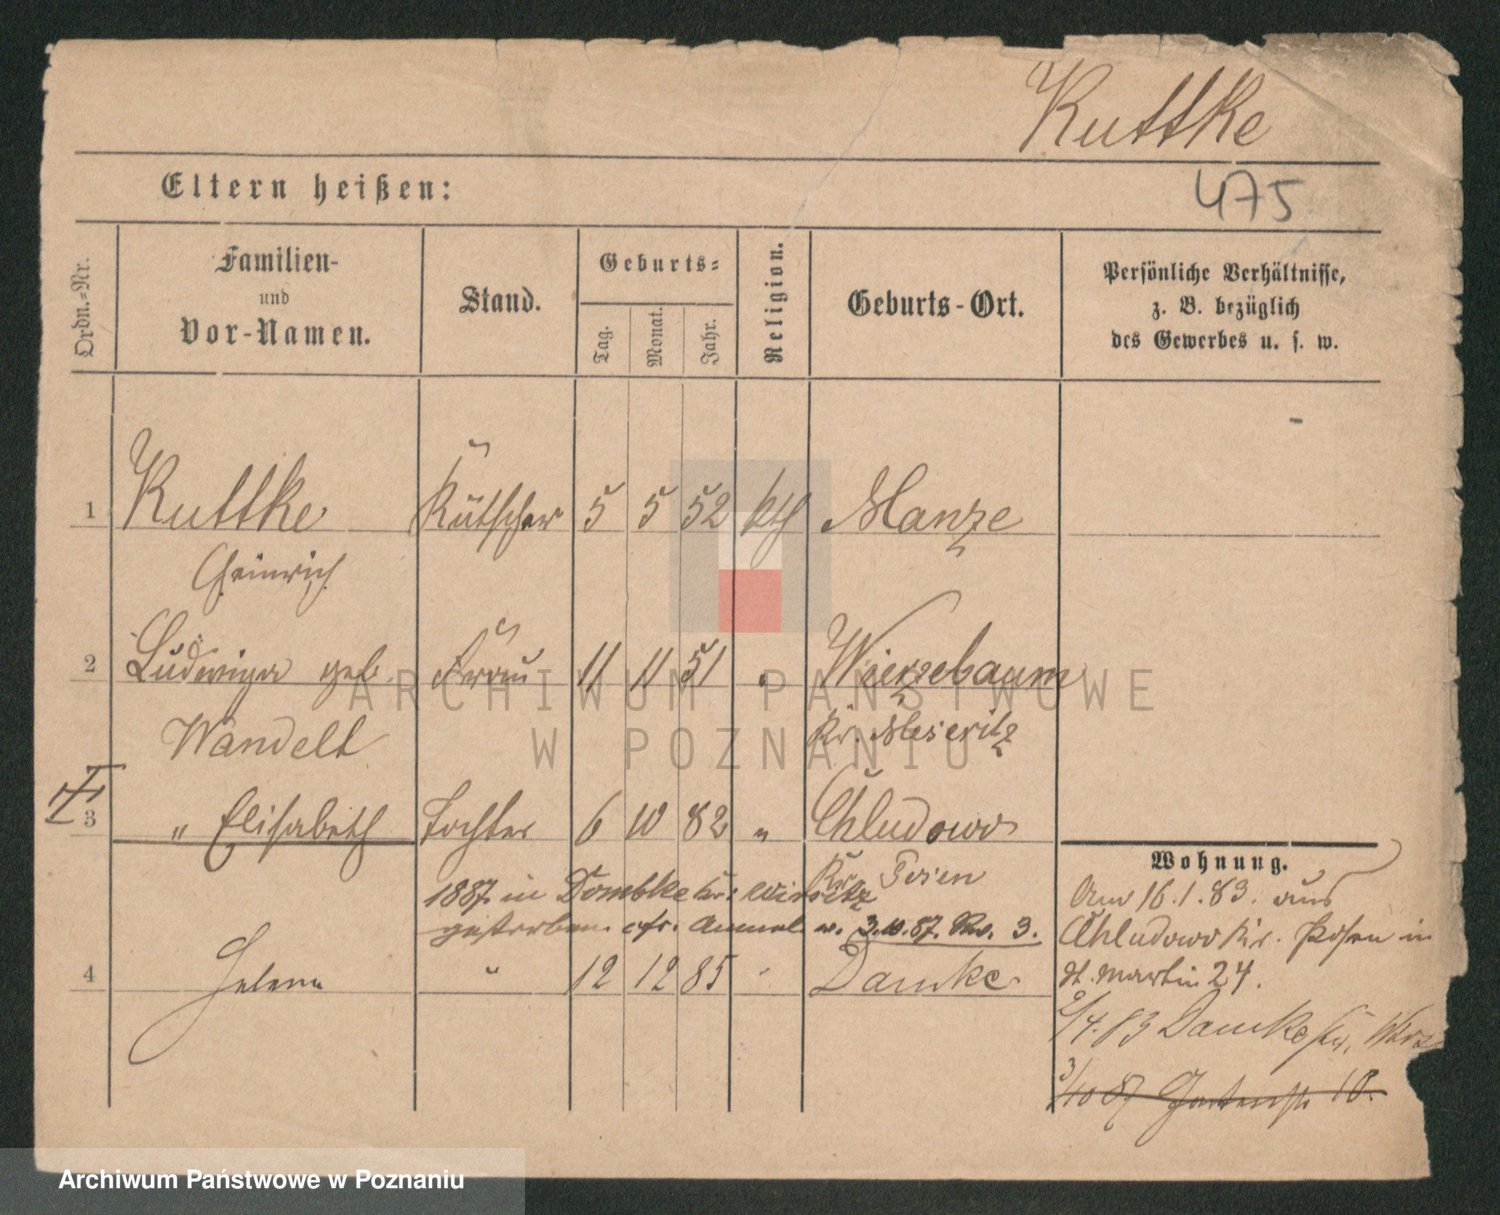 Kuttke
475
Eltern heißen:
Ordn.-Nr.
Familien-
und
Vor-Namen.
Stand.
Geburts-
Tag.
Monat.
Jahr.
Religion.
Geburts-Ort.
Persönliche Verhältnisse,
z. B. bezüglich
des Gewerbes u. s. w.
1 Kuttke Kutscher 5 5 52 kth Manze
Heinrich
2 Ludwiga geb. Frau 11 11 51 " Wierzebaum
Wandelt Kr. Meseritz
3 " Elisabeth Tochter 6 10 82 " Chludowo
Kr. Posen
1887 in Dombke Kr. Wirsitz
gestorben cfr. Anmel. v. 3.10.87. No. 3.
4 Helena " 12 12 85 " Damke
Wohnung.
Am 16.1.83. aus
Chludowo Kr. Posen in
St. Martin 24.
2/4.83 Damke Kr. Wirs
3/10 87 Gartenstr 18.
ARCHIWUM PAŃSTWOWE
W POZNANIU
Archiwum Państwowe w Poznaniu